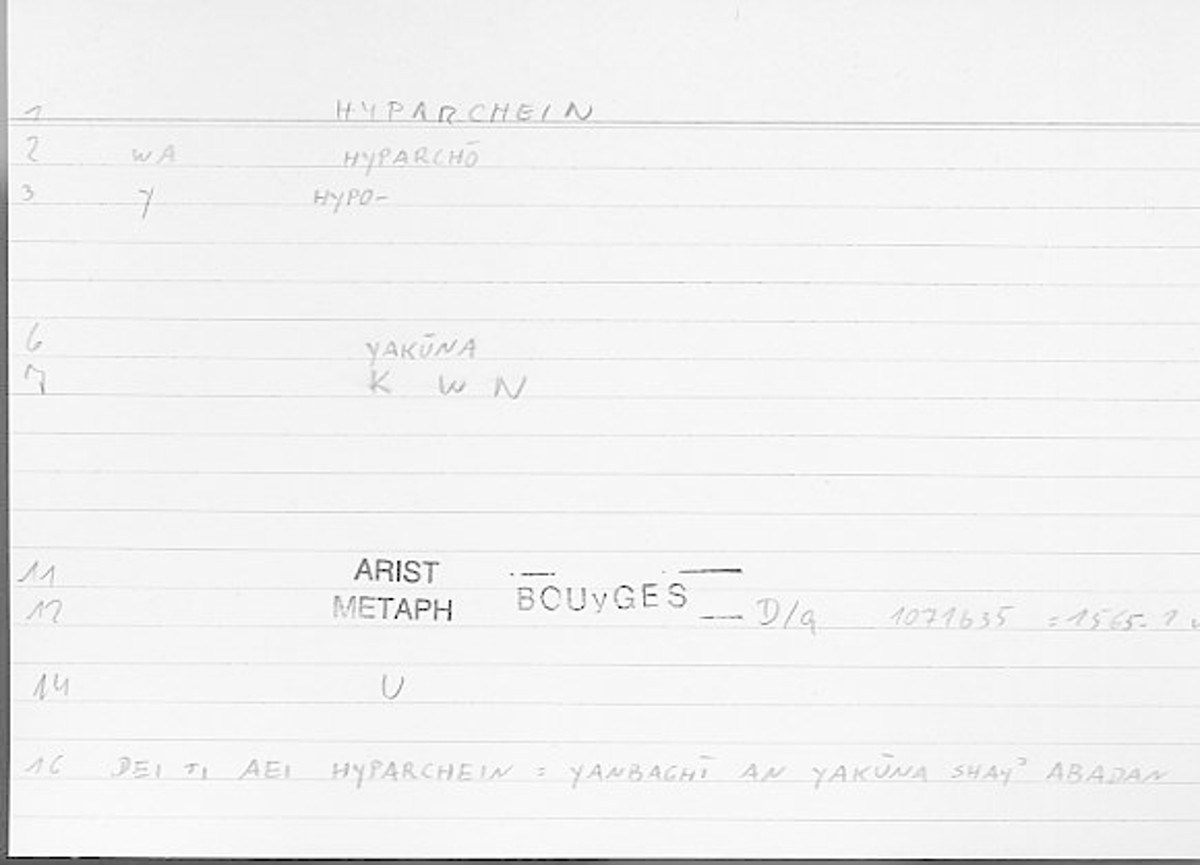 1 HYPARCHEIN
2 WA HYPARCHŌ
3 Y HYPO-
6 YAKŪNA
7 K W N
11 ARIST BOUYGES
12 METAPH D/a 1071b35 = 1565.1
14 U
16 DEI TI AEI HYPARCHEIN = YANBAGHĪ AN YAKŪNA SHAYʾ ABADAN